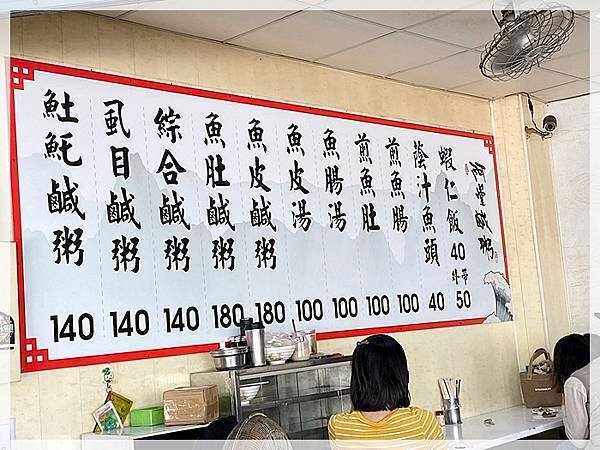 阿堂鹹粥
蝦仁飯 40
外帶 50
蔭汁魚頭 40
煎魚腸 100
煎魚肚 100
魚腸湯 100
魚皮湯 100
魚皮鹹粥 180
魚肚鹹粥 180
綜合鹹粥 140
虱目鹹粥 140
𩵚魠鹹粥 140